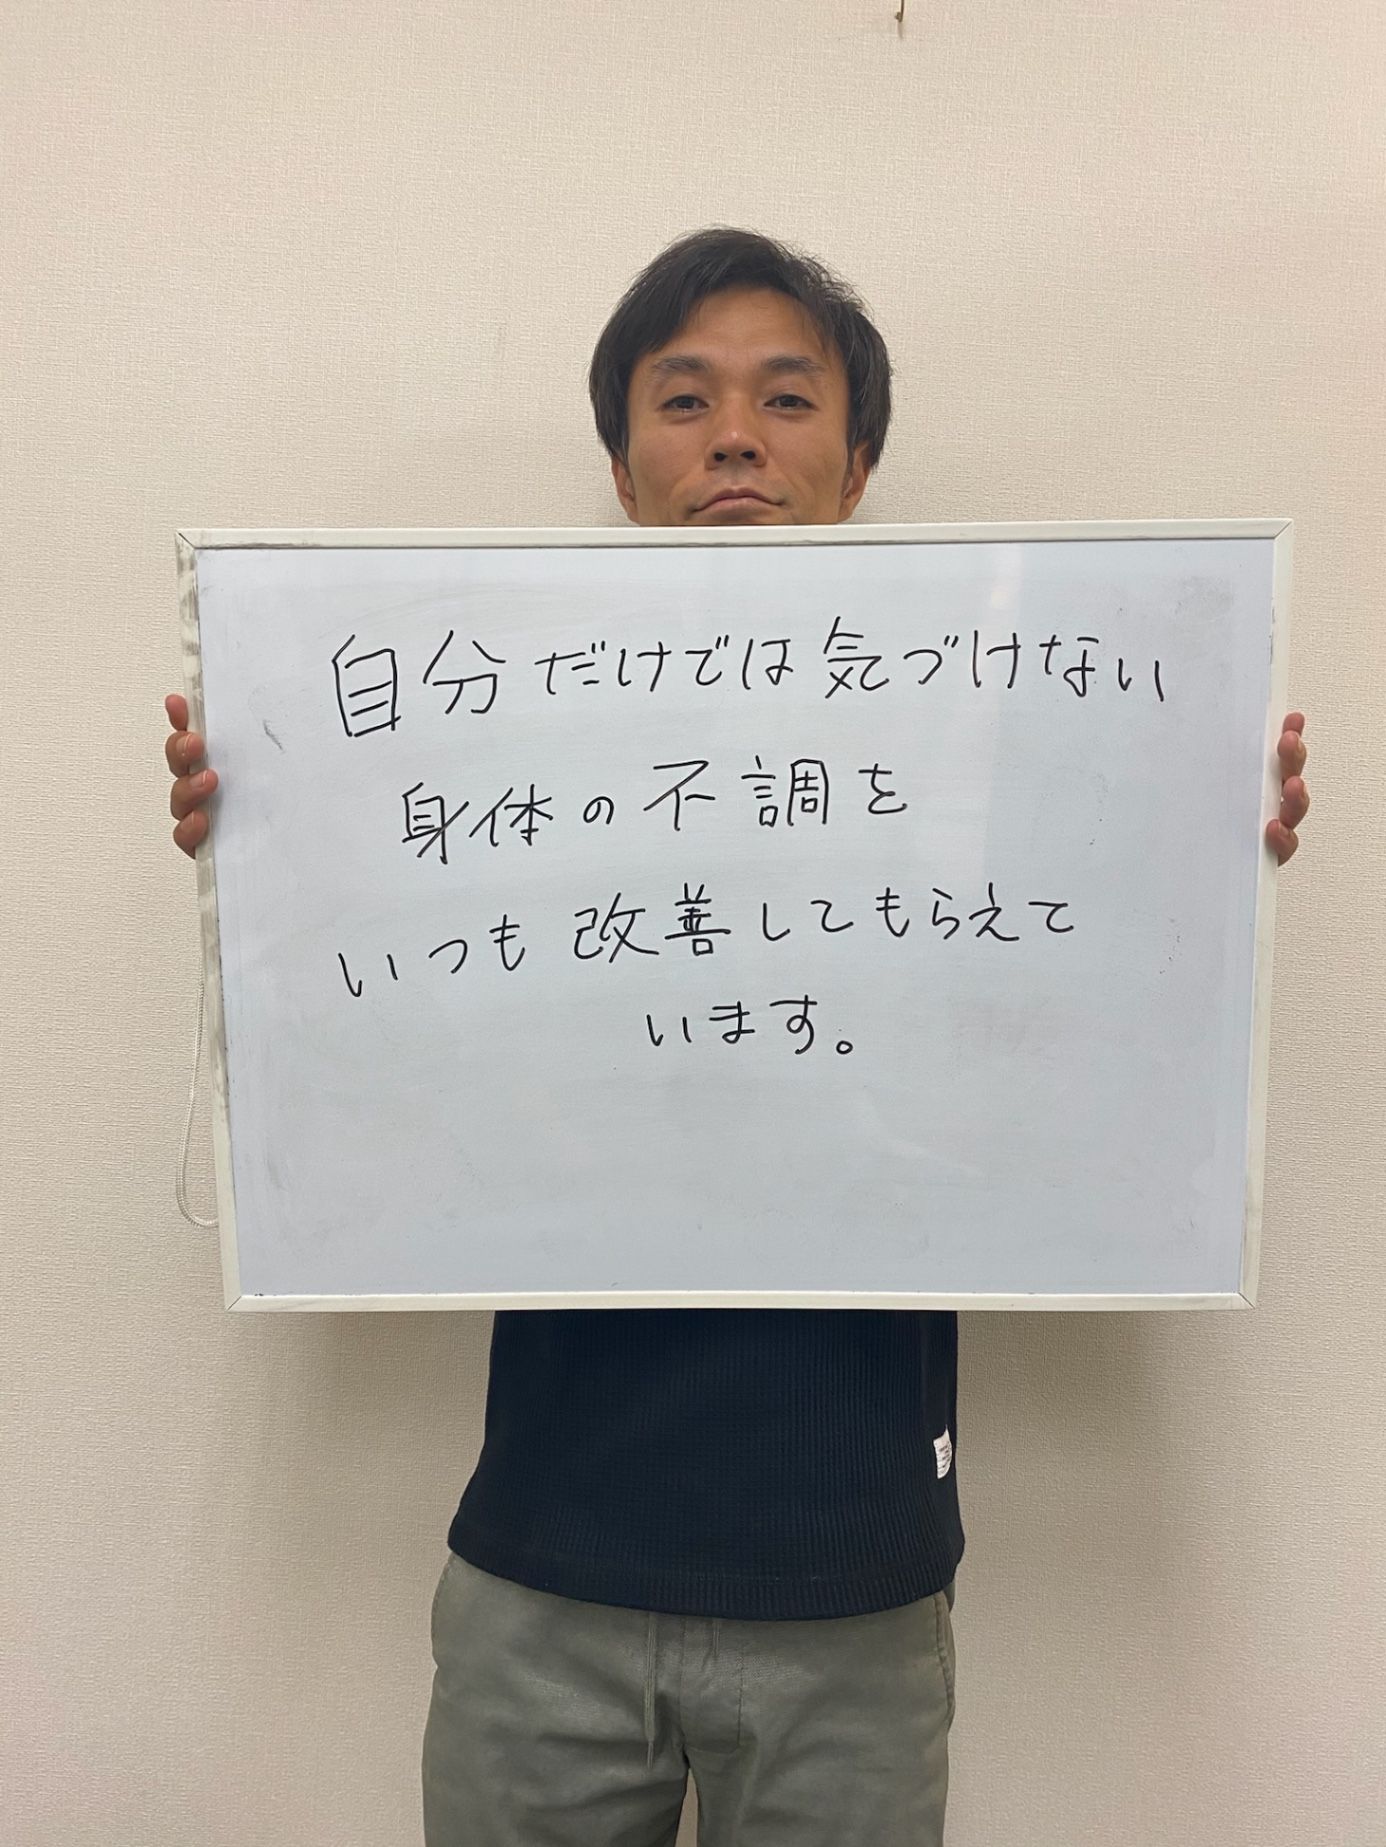 自分だけでは気づけない
身体の不調を
いつも改善してもらえて
います。